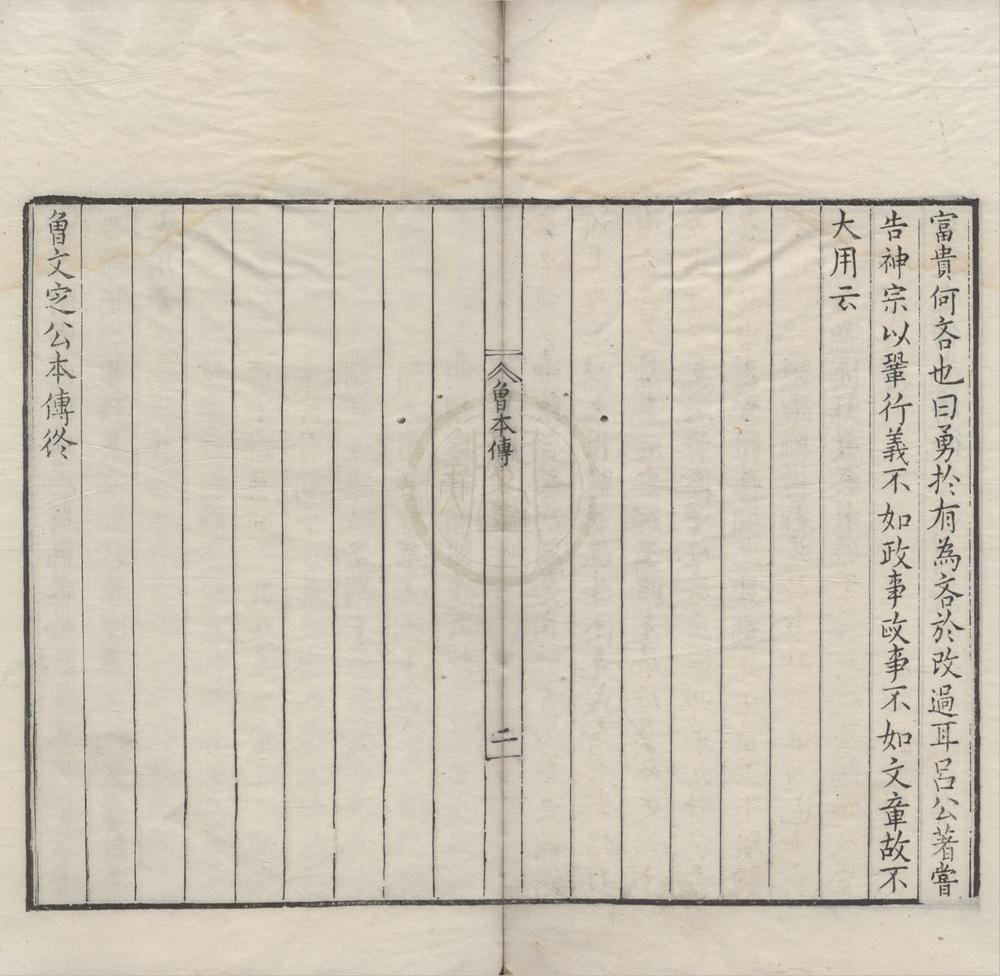 富貴何吝也曰勇扵有為吝於改過耳呂公著嘗
告神宗以鞏行義不如政事政事不如文章故不
大用云
曾本傳
二
曾文定公本傳終